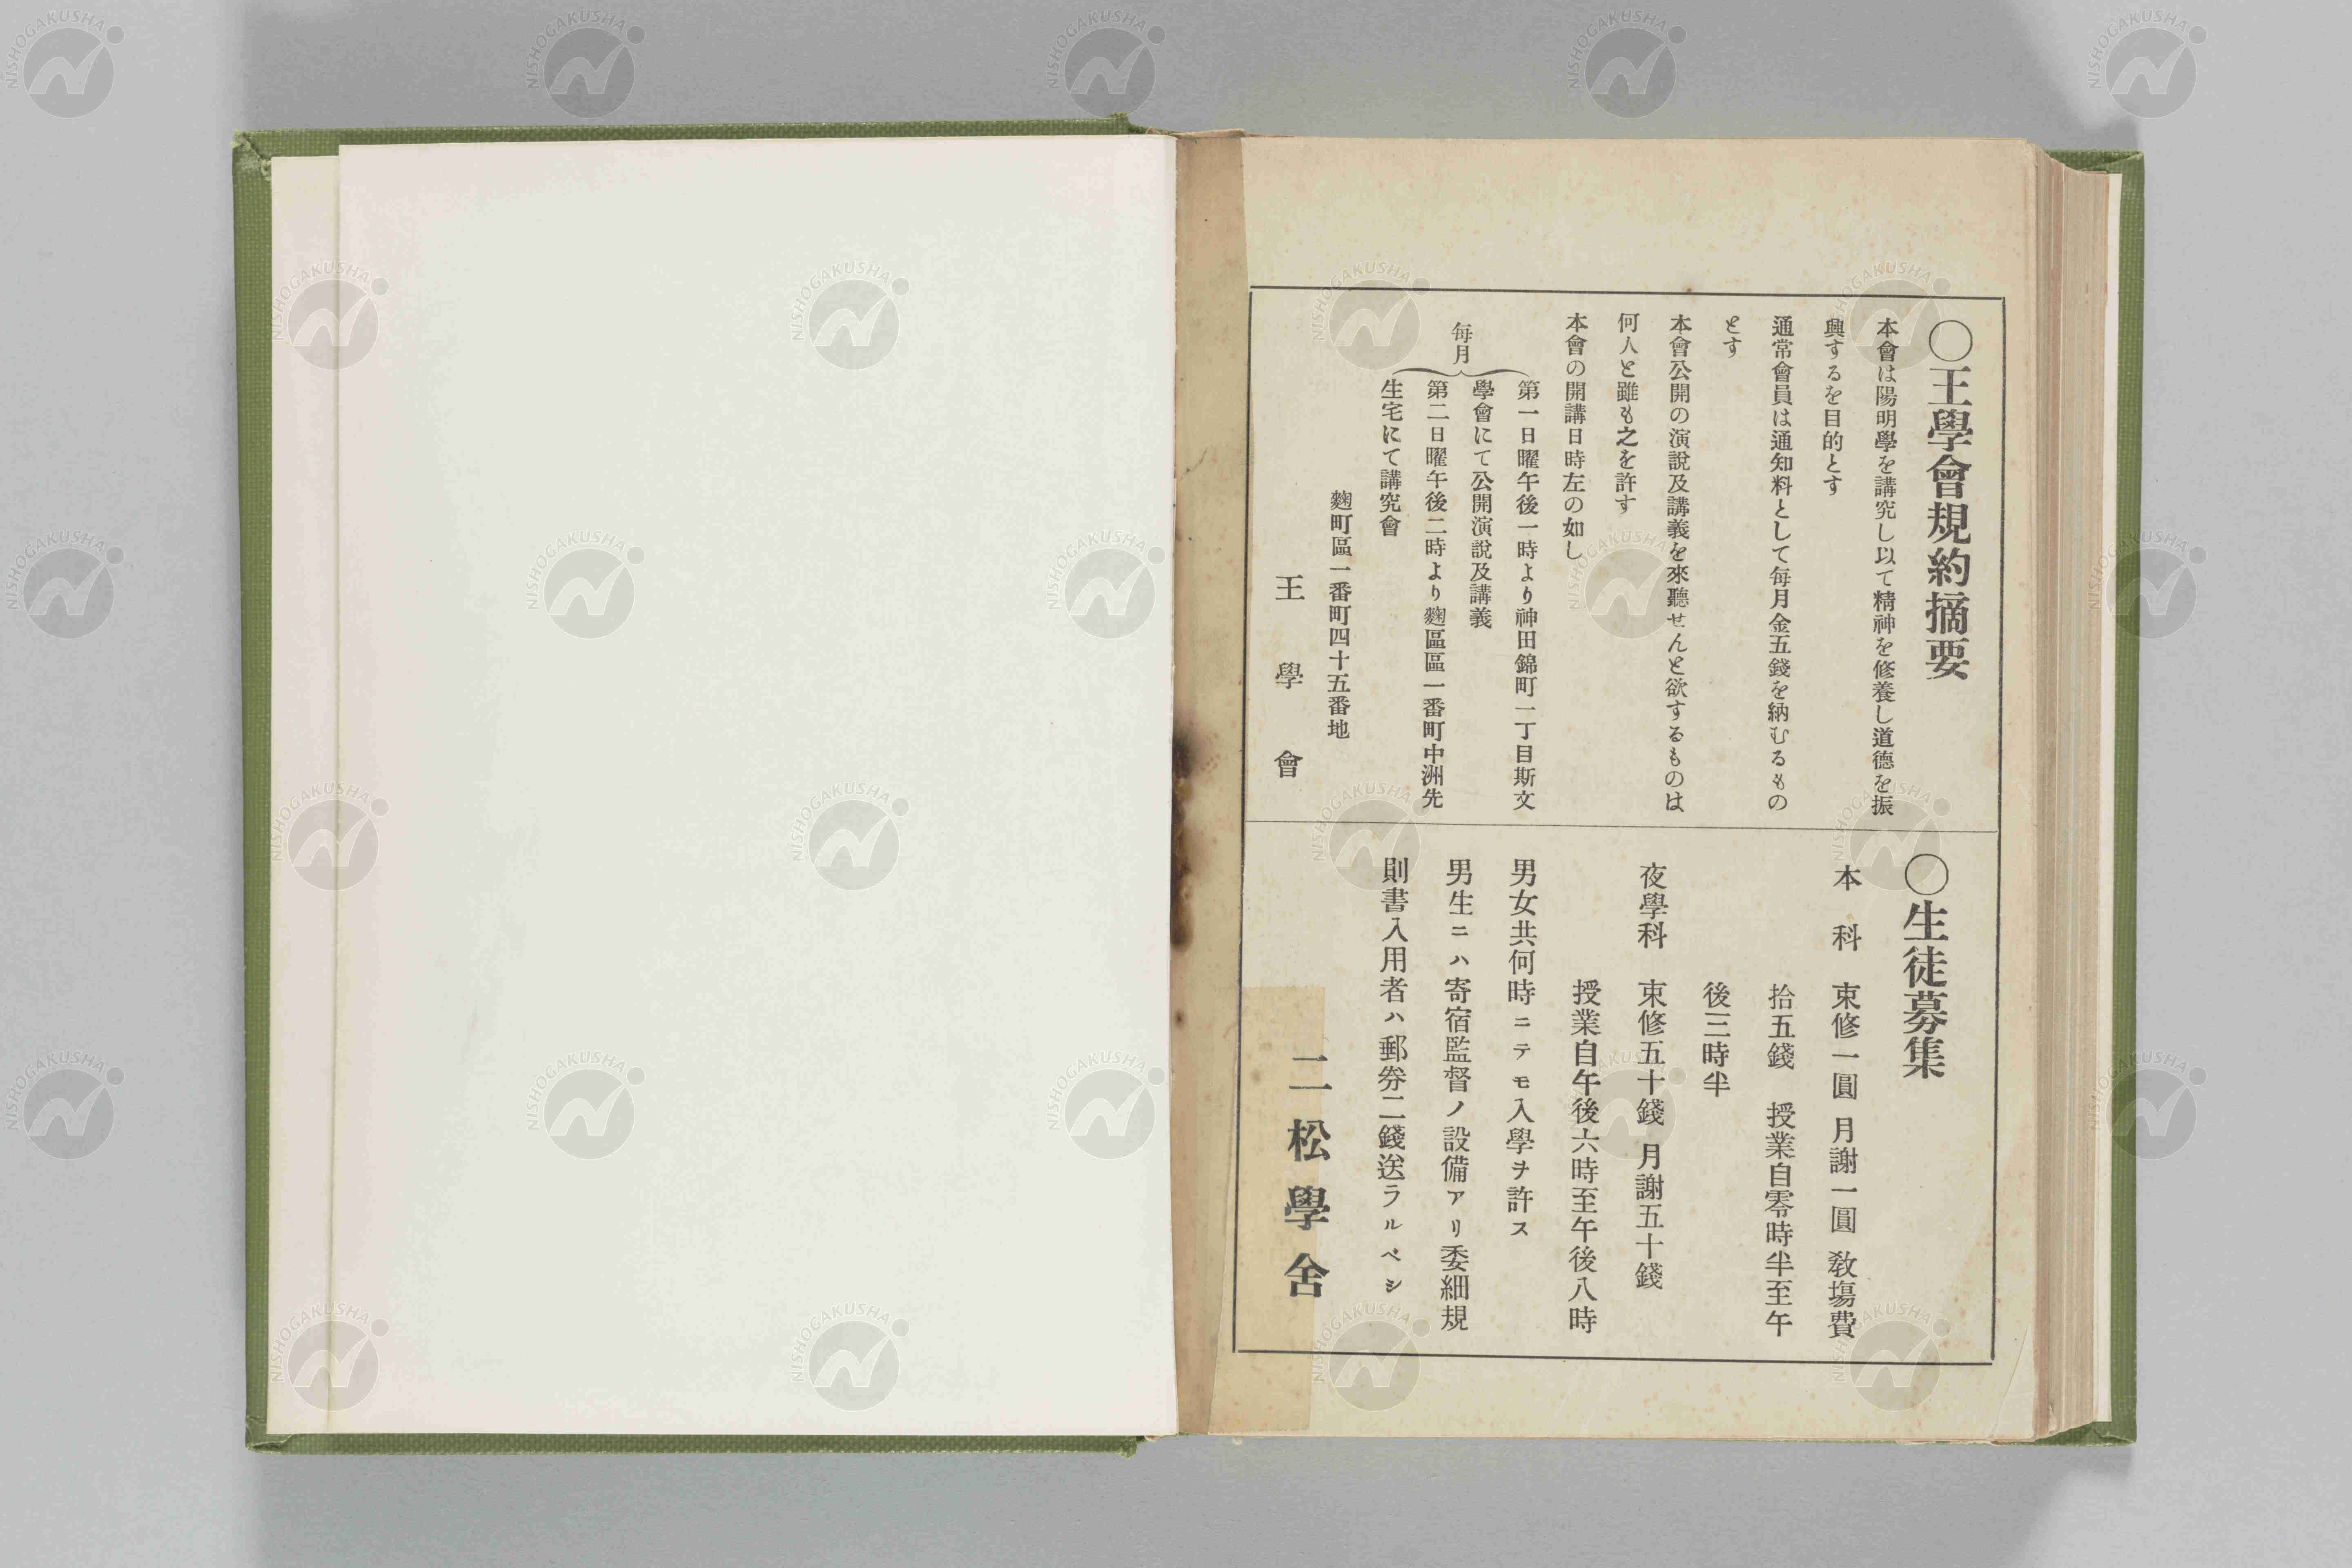 ○王學會規約摘要
本會は陽明學を講究し以て精神を修養し道德を振
興するを目的とす
通常會員は通知料として每月金五錢を納むるもの
とす
本會公開の演說及講義を來聽せんと欲するものは
何人と雖も之を許す
本會の開講日時左の如し
每月
第一日曜午後一時より神田錦町一丁目斯文
學會にて公開演說及講義
第二日曜午後二時より麴區區一番町中洲先
生宅にて講究會
麴町區一番町四十五番地
王學會
○生徒募集
本科 束修一圓 月謝一圓 敎塲費
拾五錢 授業自零時半至午
後三時半
夜學科 束修五十錢 月謝五十錢
授業自午後六時至午後八時
男女共何時ニテモ入學ヲ許ス
男生ニハ寄宿監督ノ設備アリ委細規
則書入用者ハ郵券二錢送ラルベシ
二松學舍
NISHOGAKUSHA